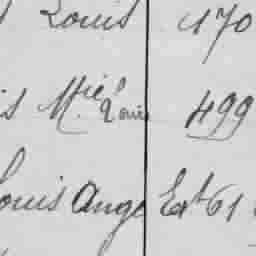 Louis 170
s Mie Louis 499
Louis Ange Ext 61